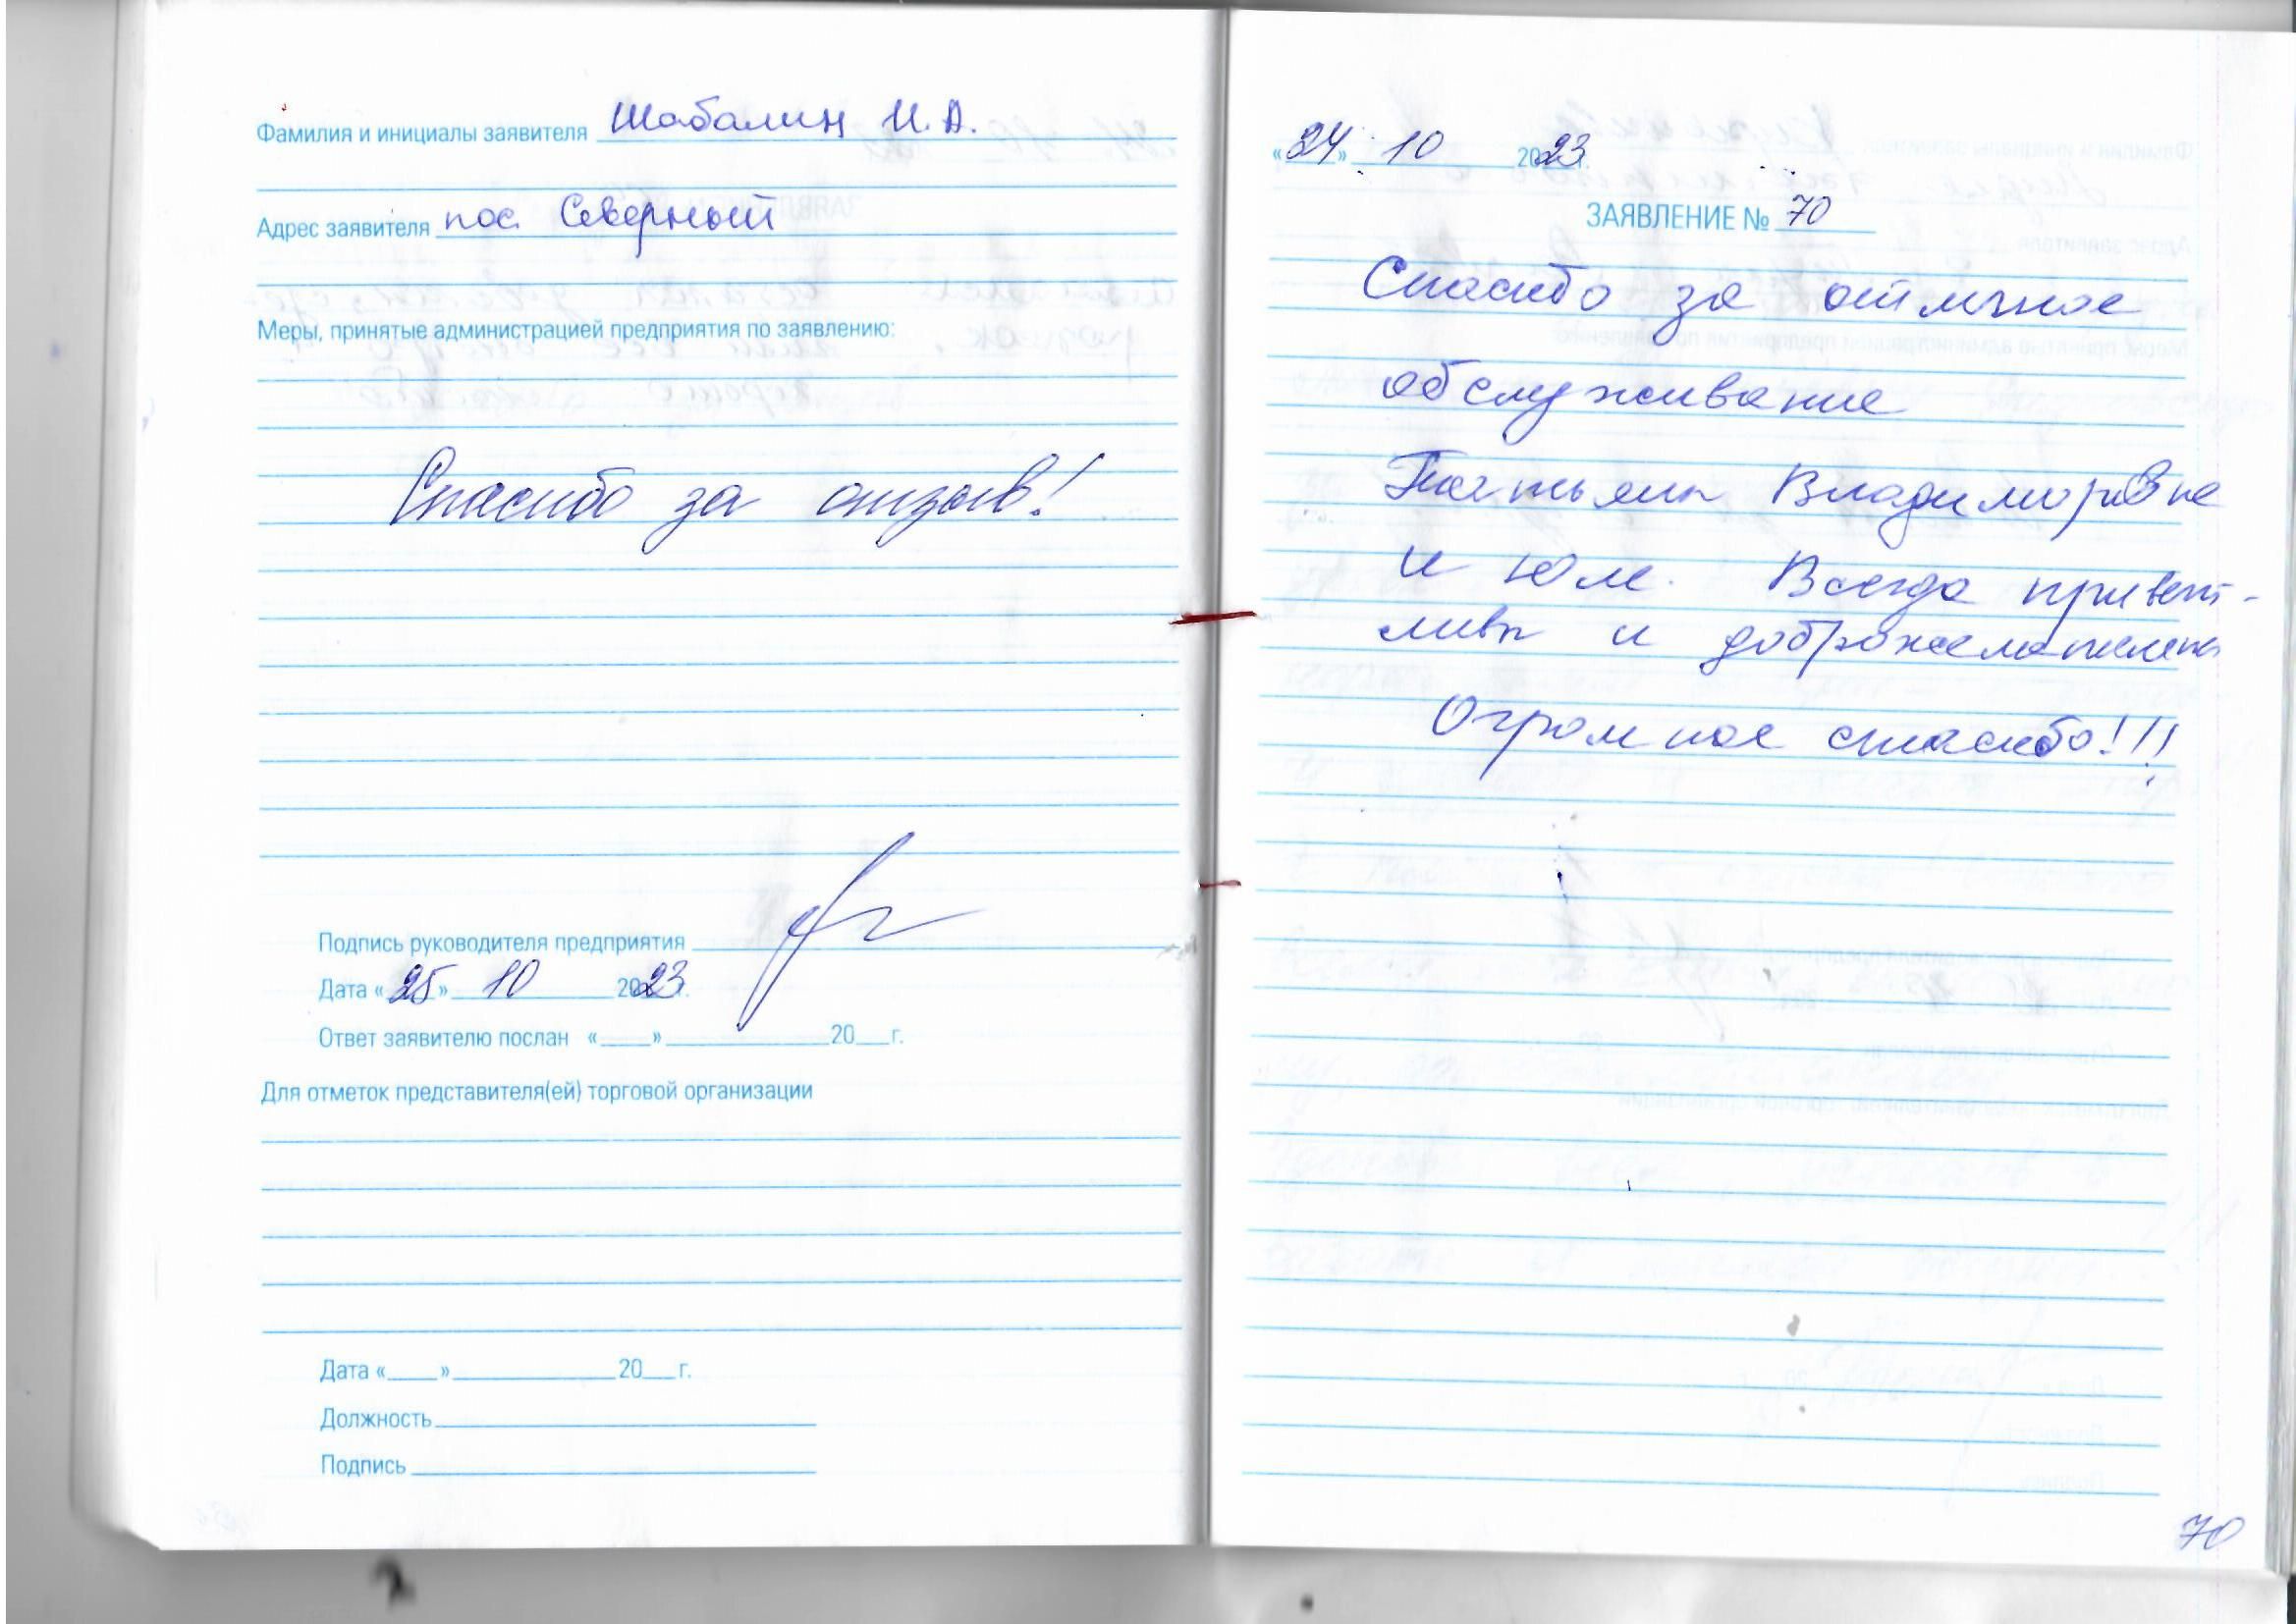 Фамилия и инициалы заявителя Шабалин И.А.
Адрес заявителя пос. Северный
Меры, принятые администрацией предприятия по заявлению:
Спасибо за отзыв!
Подпись руководителя предприятия
Дата «25» 10 2023 г.
Ответ заявителю послан «____» ____________ 20___г.
Для отметок представителя(ей) торговой организации
Дата «____» ____________ 20___г.
Должность
Подпись
«24» 10 2023 г.
ЗАЯВЛЕНИЕ № 70
Спасибо за отличное
обслуживание
Татьяны Владимировне
и Юле. Всегда привет-
ливы и доброжелательны
Огромное спасибо!!!
70